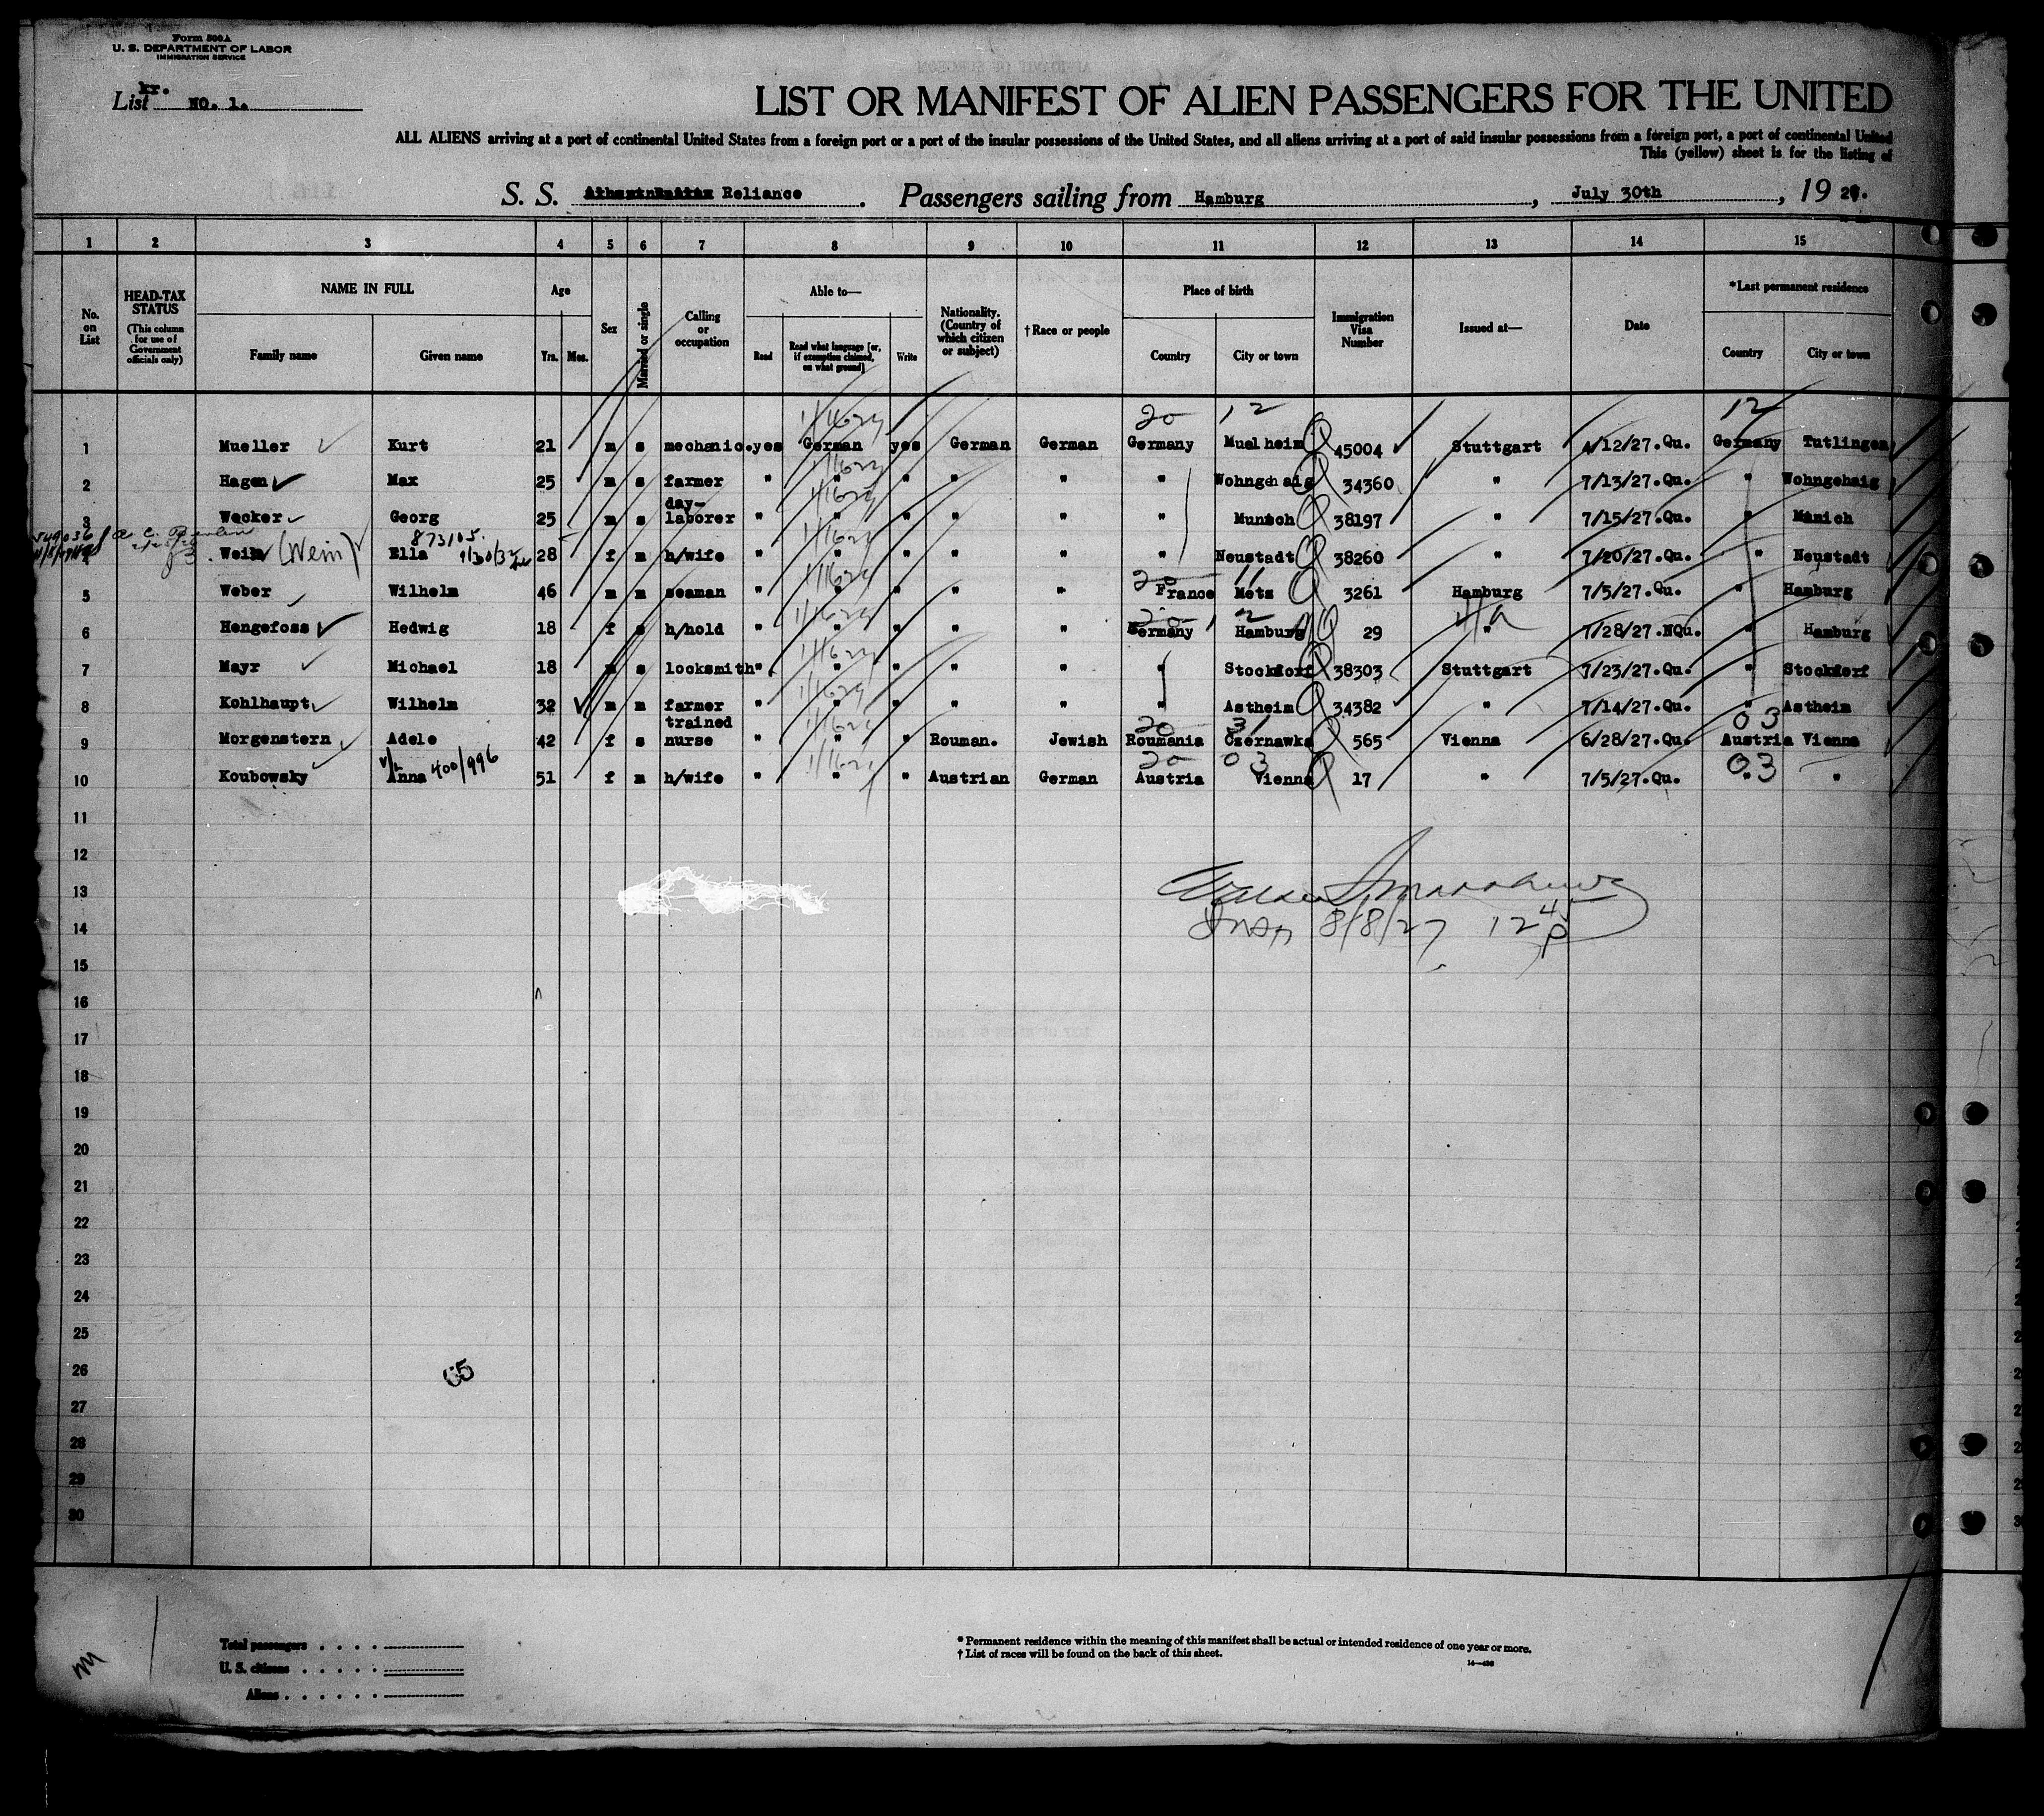 Form 500A
U. S. DEPARTMENT OF LABOR
IMMIGRATION SERVICE
kr.
List NO. 1.
LIST OR MANIFEST OF ALIEN PASSENGERS FOR THE UNITED
ALL ALIENS arriving at a port of continental United States from a foreign port or a port of the insular possessions of the United States, and all aliens arriving at a port of said insular possessions from a foreign port, a port of continental United
This (yellow) sheet is for the listing of
S. S. Reliance. Passengers sailing from Hamburg, July 30th, 19 27.
1 2 3 4 5 6 7 8 9 10 11 12 13 14 15
No. on List
HEAD-TAX STATUS (This column for use of Government officials only)
NAME IN FULL Family name Given name
Age Yrs. Mos.
Sex
Married or single
Calling or occupation
Able to— Read Read what language [or, if exemption claimed, on what ground] Write
Nationality. (Country of which citizen or subject)
†Race or people
Place of birth Country City or town
Immigration Visa Number
Issued at—
Date
*Last permanent residence Country City or town
20 12 12
1 Mueller Kurt 21 m s mechanic. yes German yes German German Germany Muelheim 45004 Stuttgart 4/12/27.Qu. Germany Tutlingen
2 Hagen Max 25 m s farmer " " " " " " Wohngehaig 34360 " 7/13/27.Qu. " Wohngehaig
3 Wecker Georg 25 m s day-laborer " " " " " " Munich 38197 " 7/15/27.Qu. " Munich
873105
4 Weil (Wein) Ella 9/30/35 28 f m h/wife " " " " " " Neustadt 38260 " 7/20/27.Qu. " Neustadt
20 11
5 Weber Wilhelm 46 m m seaman " " " " " France Metz 3261 Hamburg 7/5/27.Qu. " Hamburg
20 12
6 Hengefoss Hedwig 18 f s h/hold " " " " " Germany Hamburg 29 " 7/28/27.NQu. " Hamburg
7 Mayr Michael 18 m s locksmith " " " " " " Stockdorf 38303 Stuttgart 7/23/27.Qu. " Stockdorf
8 Kohlhaupt Wilhelm 32 m m farmer " " " " " " Astheim 34382 " 7/14/27.Qu. " Astheim
20 31 03
9 Morgenstern Adele 42 f s trained nurse " " " Rouman. Jewish Roumania Czernawka 565 Vienna 6/28/27.Qu. Austria Vienna
400/996 20 03 03
10 Koubowsky Anna 51 f m h/wife " " " Austrian German Austria Vienna 17 " 7/5/27.Qu. " "
11
12
13
8/8/27 12 45 P
14
15
16
17
18
19
20
21
22
23
24
25
26
65
27
28
29
30
Total passengers
U. S. citizens
Aliens
* Permanent residence within the meaning of this manifest shall be actual or intended residence of one year or more.
† List of races will be found on the back of this sheet.